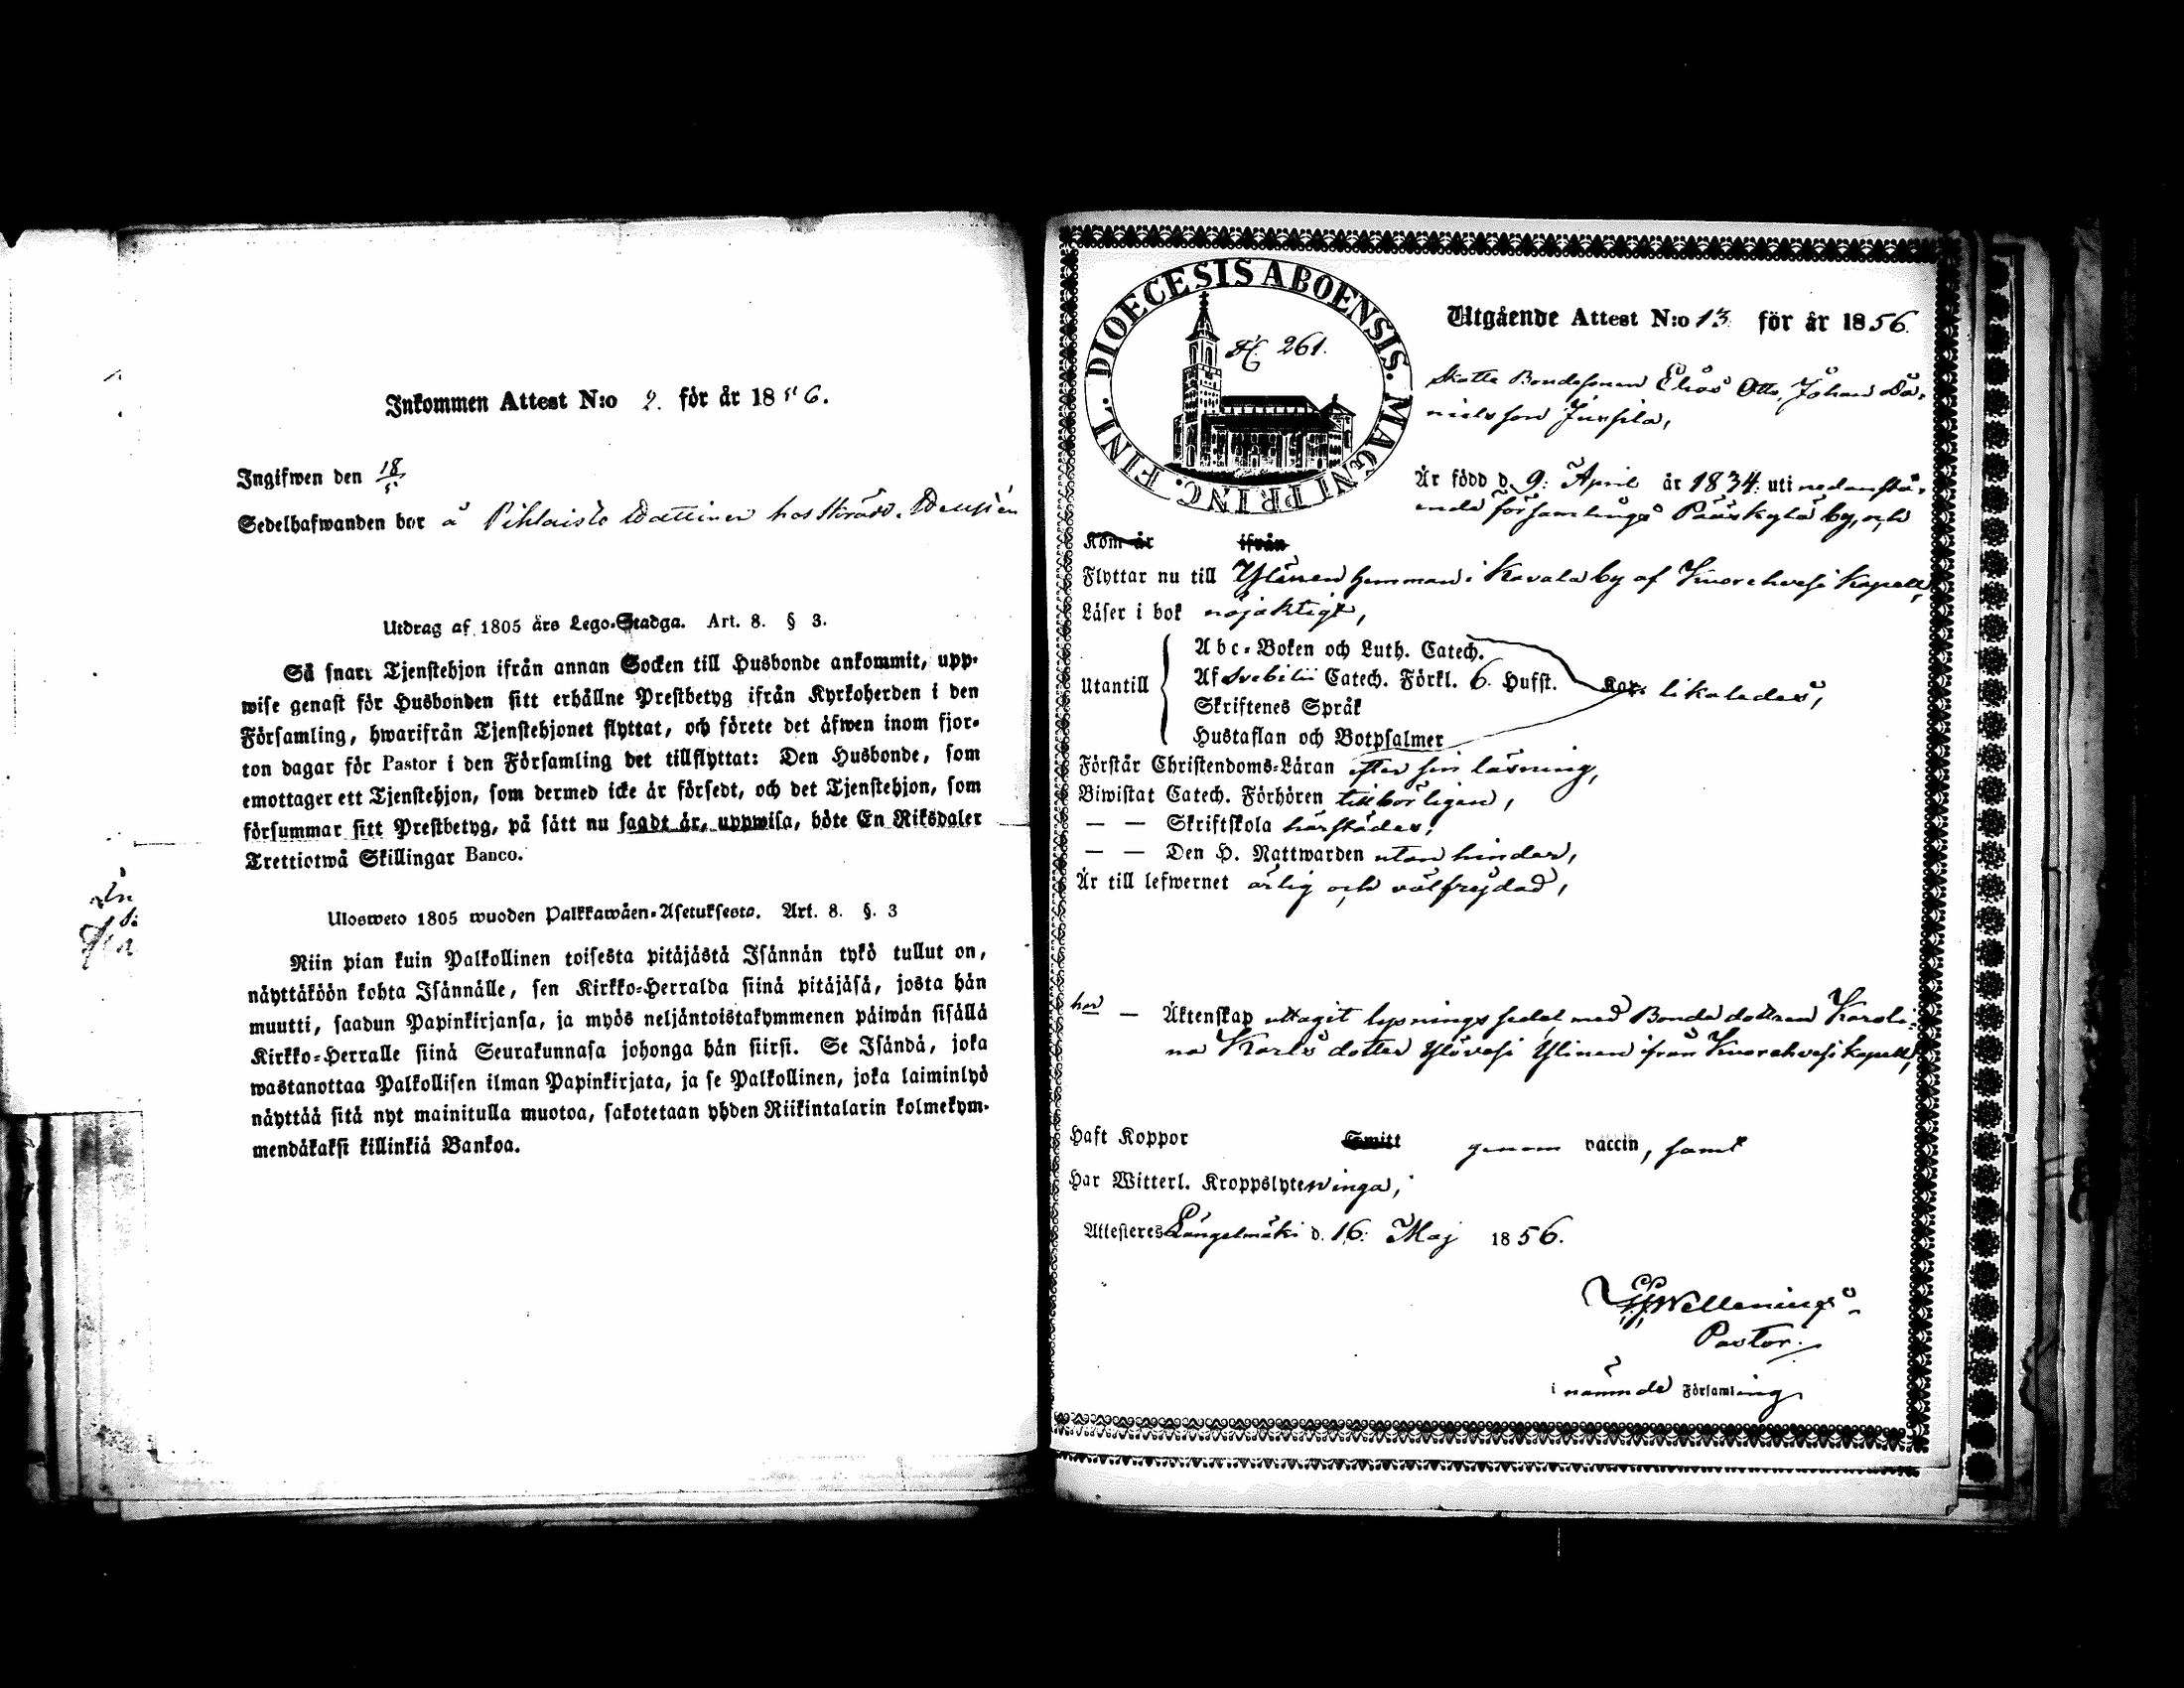 Inkommen Attest N:o 2. för år 1856.
Ingifwen den 18/5
Sedelhafwanden bor å Pihlaisto Wattinen hos
Utdrag af 1805 års Lego-Stadga. Art. 8. § 3.
Så snart Tjenstehjon ifrån annan Socken till Husbonde ankommit, upp-
wise genast för Husbonden sitt erhållne Prestbetyg ifrån Kyrkoherden i den
Församling, hwarifrån Tjenstehjonet flyttat, och förete det äfwen inom fjor-
ton dagar för Pastor i den Församling det tillflyttat: Den Husbonde, som
emottager ett Tjenstehjon, som dermed icke är försedt, och det Tjenstehjon, som
försummar sitt Prestbetyg, på sätt nu sagdt är, uppwisa, böte En Riksdaler
Trettiotwå Skillingar Banco.
Ulosweto 1805 wuoden Palkkawäen-Asetuksesta. Art. 8. §. 3
Niin pian kuin Palkollinen toisesta pitäjästä Isännän tykö tullut on,
näyttäköön kohta Isännälle, sen Kirkko-Herralda siinä pitäjäsä, josta hän
muutti, saadun Papinkirjansa, ja myös neljäntoistakymmenen päiwän sisällä
Kirkko-Herralle siinä Seurakunnasa johonga hän siirsi. Se Isändä, joka
wastanottaa Palkollisen ilman Papinkirjata, ja se Palkollinen, joka laiminlyö
näyttää sitä nyt mainitulla muotoa, sakotetaan yhden Riikintalarin kolmekym-
mendäkaksi killinkiä Bankoa.
DIOECESIS ABOENSIS. MAGNI PRINC. FINL.
261.
Utgående Attest N:o 13. för år 1856.
Skatte Bondesonen Elias Otto Johan Da-
nielsson Jussila,
Är född d. 9: April år 1834: uti nedanstå-
ende församlings Pääskylä by, och
Kom år ifrån
Flyttar nu till Ylinen hemman i Kavala by af Kuorehvesi Kapell,
Läser i bok nöjaktigt,
Utantill
Abc-Boken och Luth. Catech.
Af Svebilii Catech. Förkl. 6. Hufst. likaledes,
Skriftenes Språk
Hustaflan och Botpsalmer
Förstår Christendoms-Läran efter sin läsning,
Biwistat Catech. Förhören tillbörligen,
— — Skriftskola härstädes,
— — Den H. Nattwarden utan hinder,
Är till lefwernet ärlig och välfrejdad,
har — Äktenskap uttagit lysningssedel med Bonda dottren Karoli-
na Karls dotter Ylövesi Ylinen ifrån Kuorehvesi Kapell,
Haft Koppor Smitt genom vaccin, samt
Har Witterl. Kroppslyten inga,
Attesteres Längelmäki d. 16: Maj 1856.
Wellenius
Pastor.
i nämnde Församling